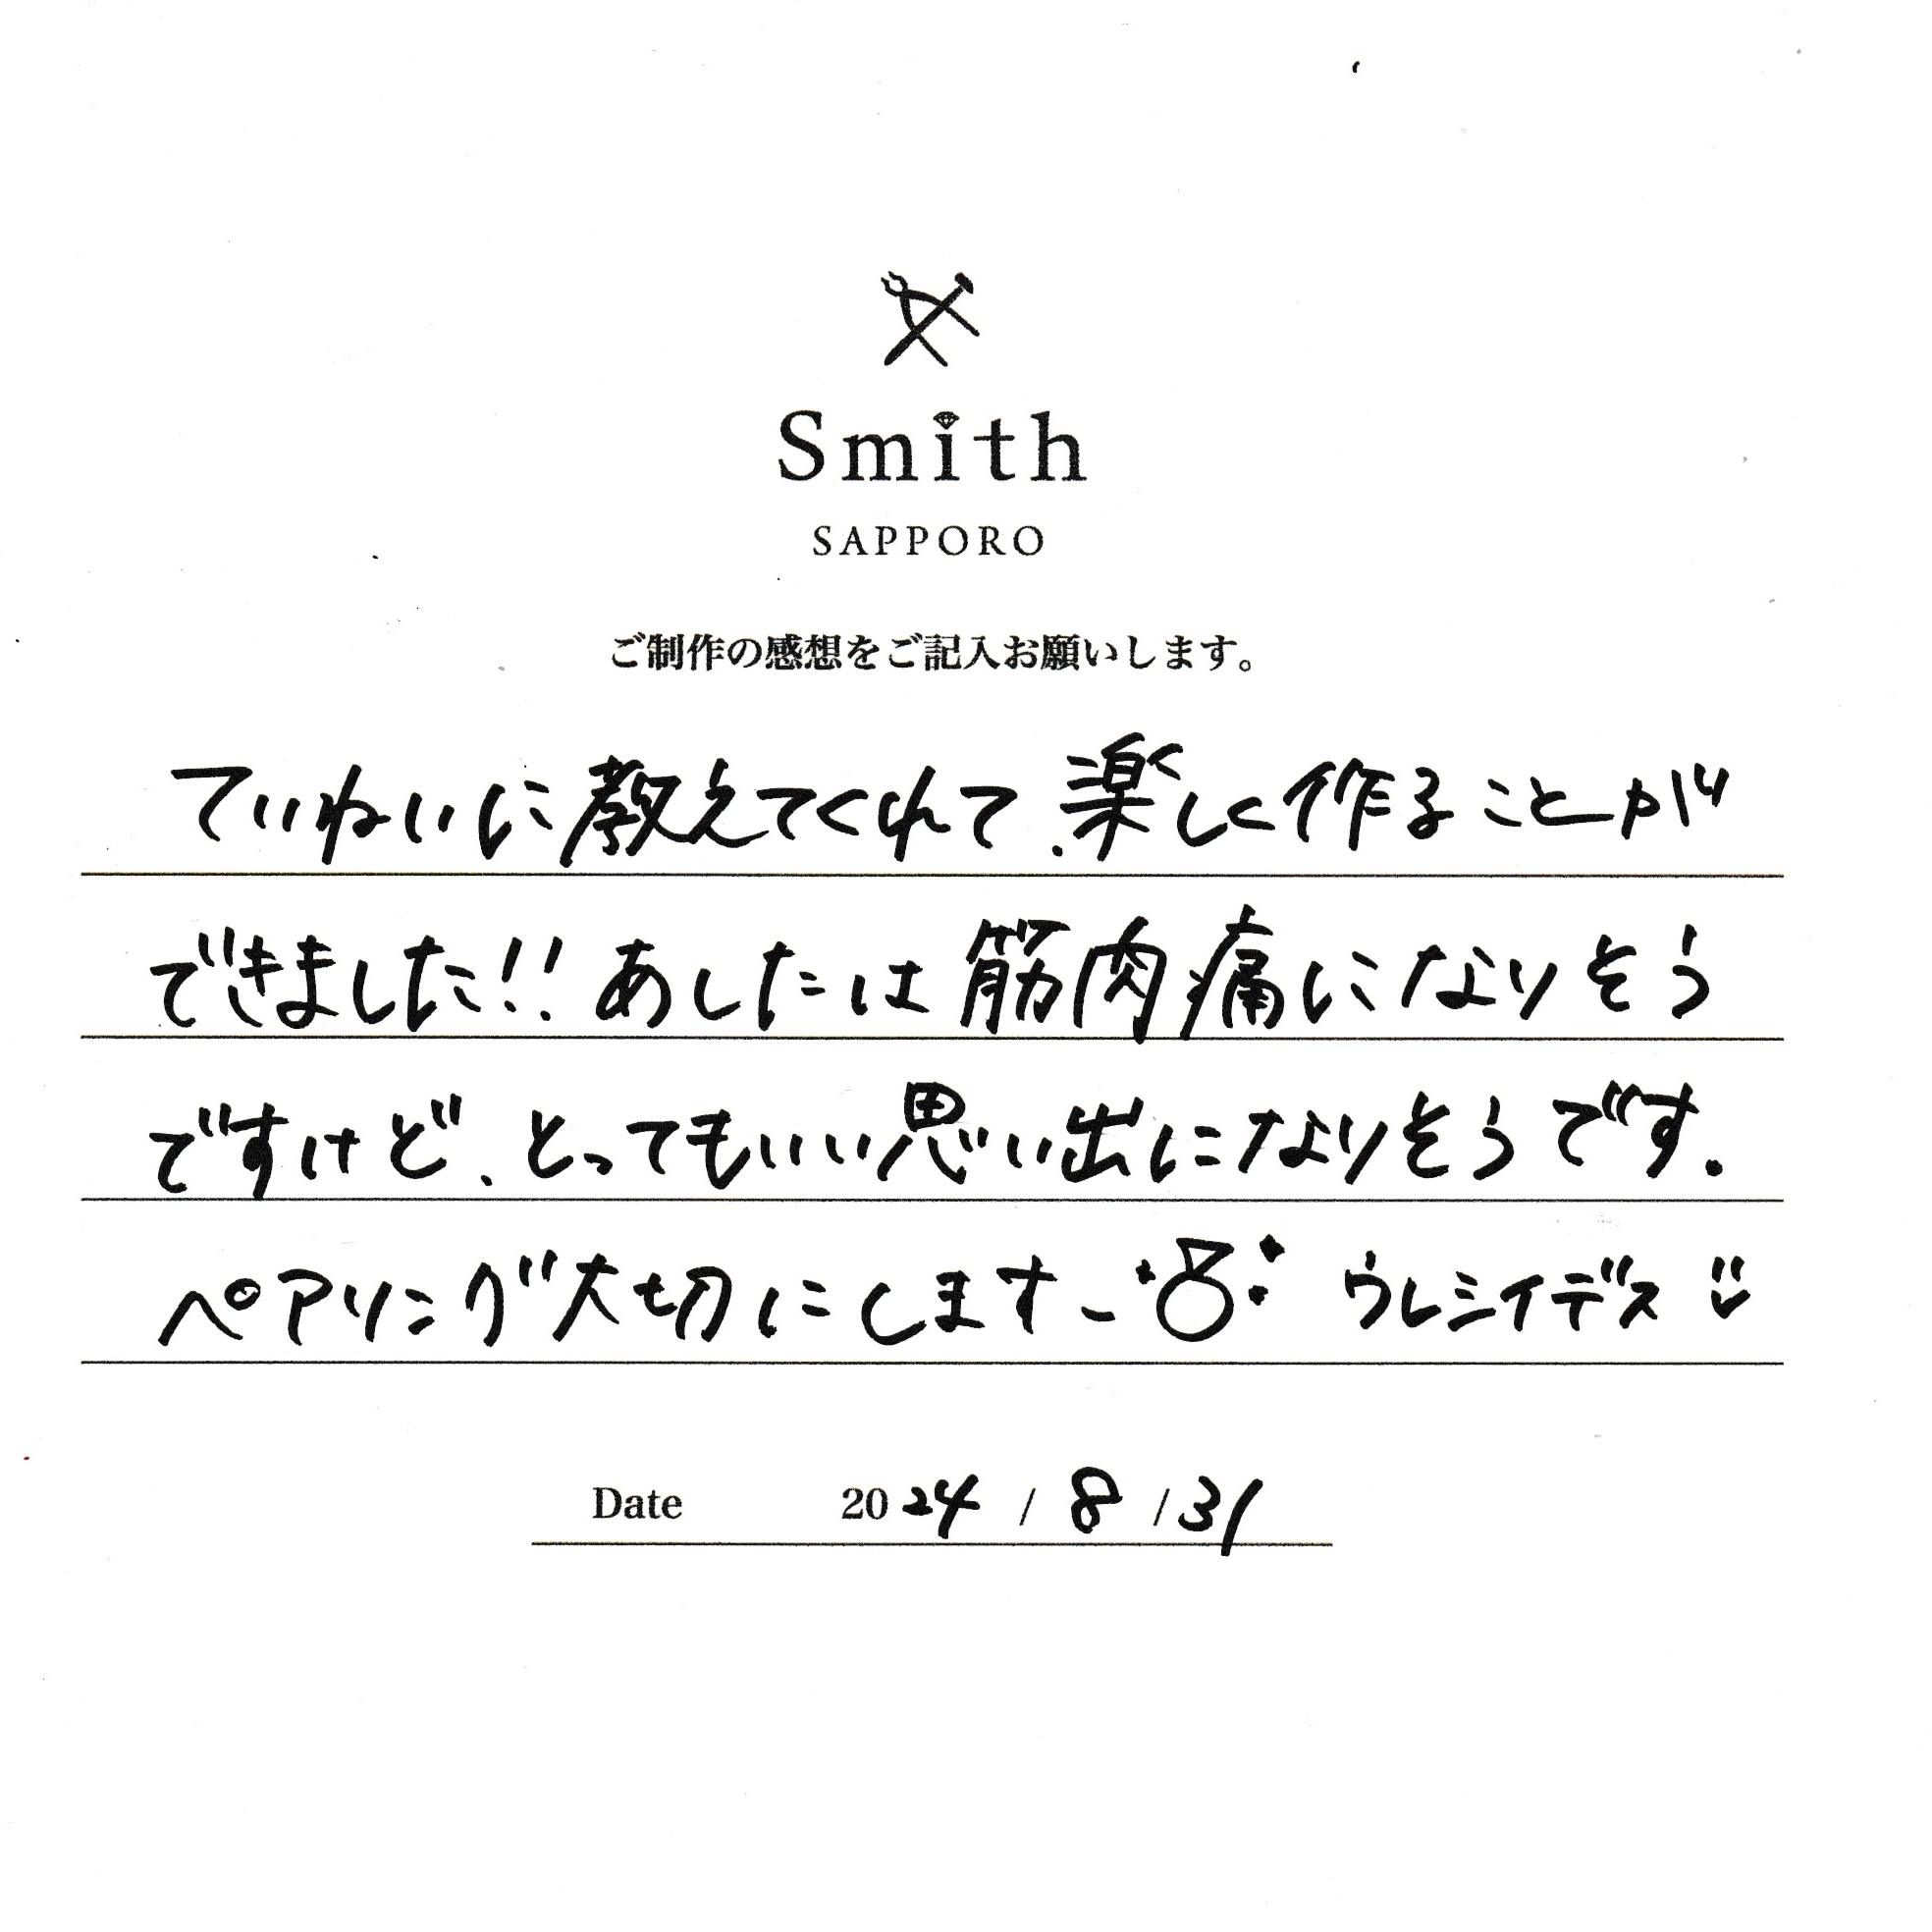 Smith
SAPPORO
ご制作の感想をご記入お願いします。
ていねいに教えてくれて、楽しく作ることが
できました!! あしたは筋肉痛になりそう
ですけど、とってもいい思い出になりそうです。
ペアリング大切にします〜 ウレシイデス
Date 2024 / 8 / 31